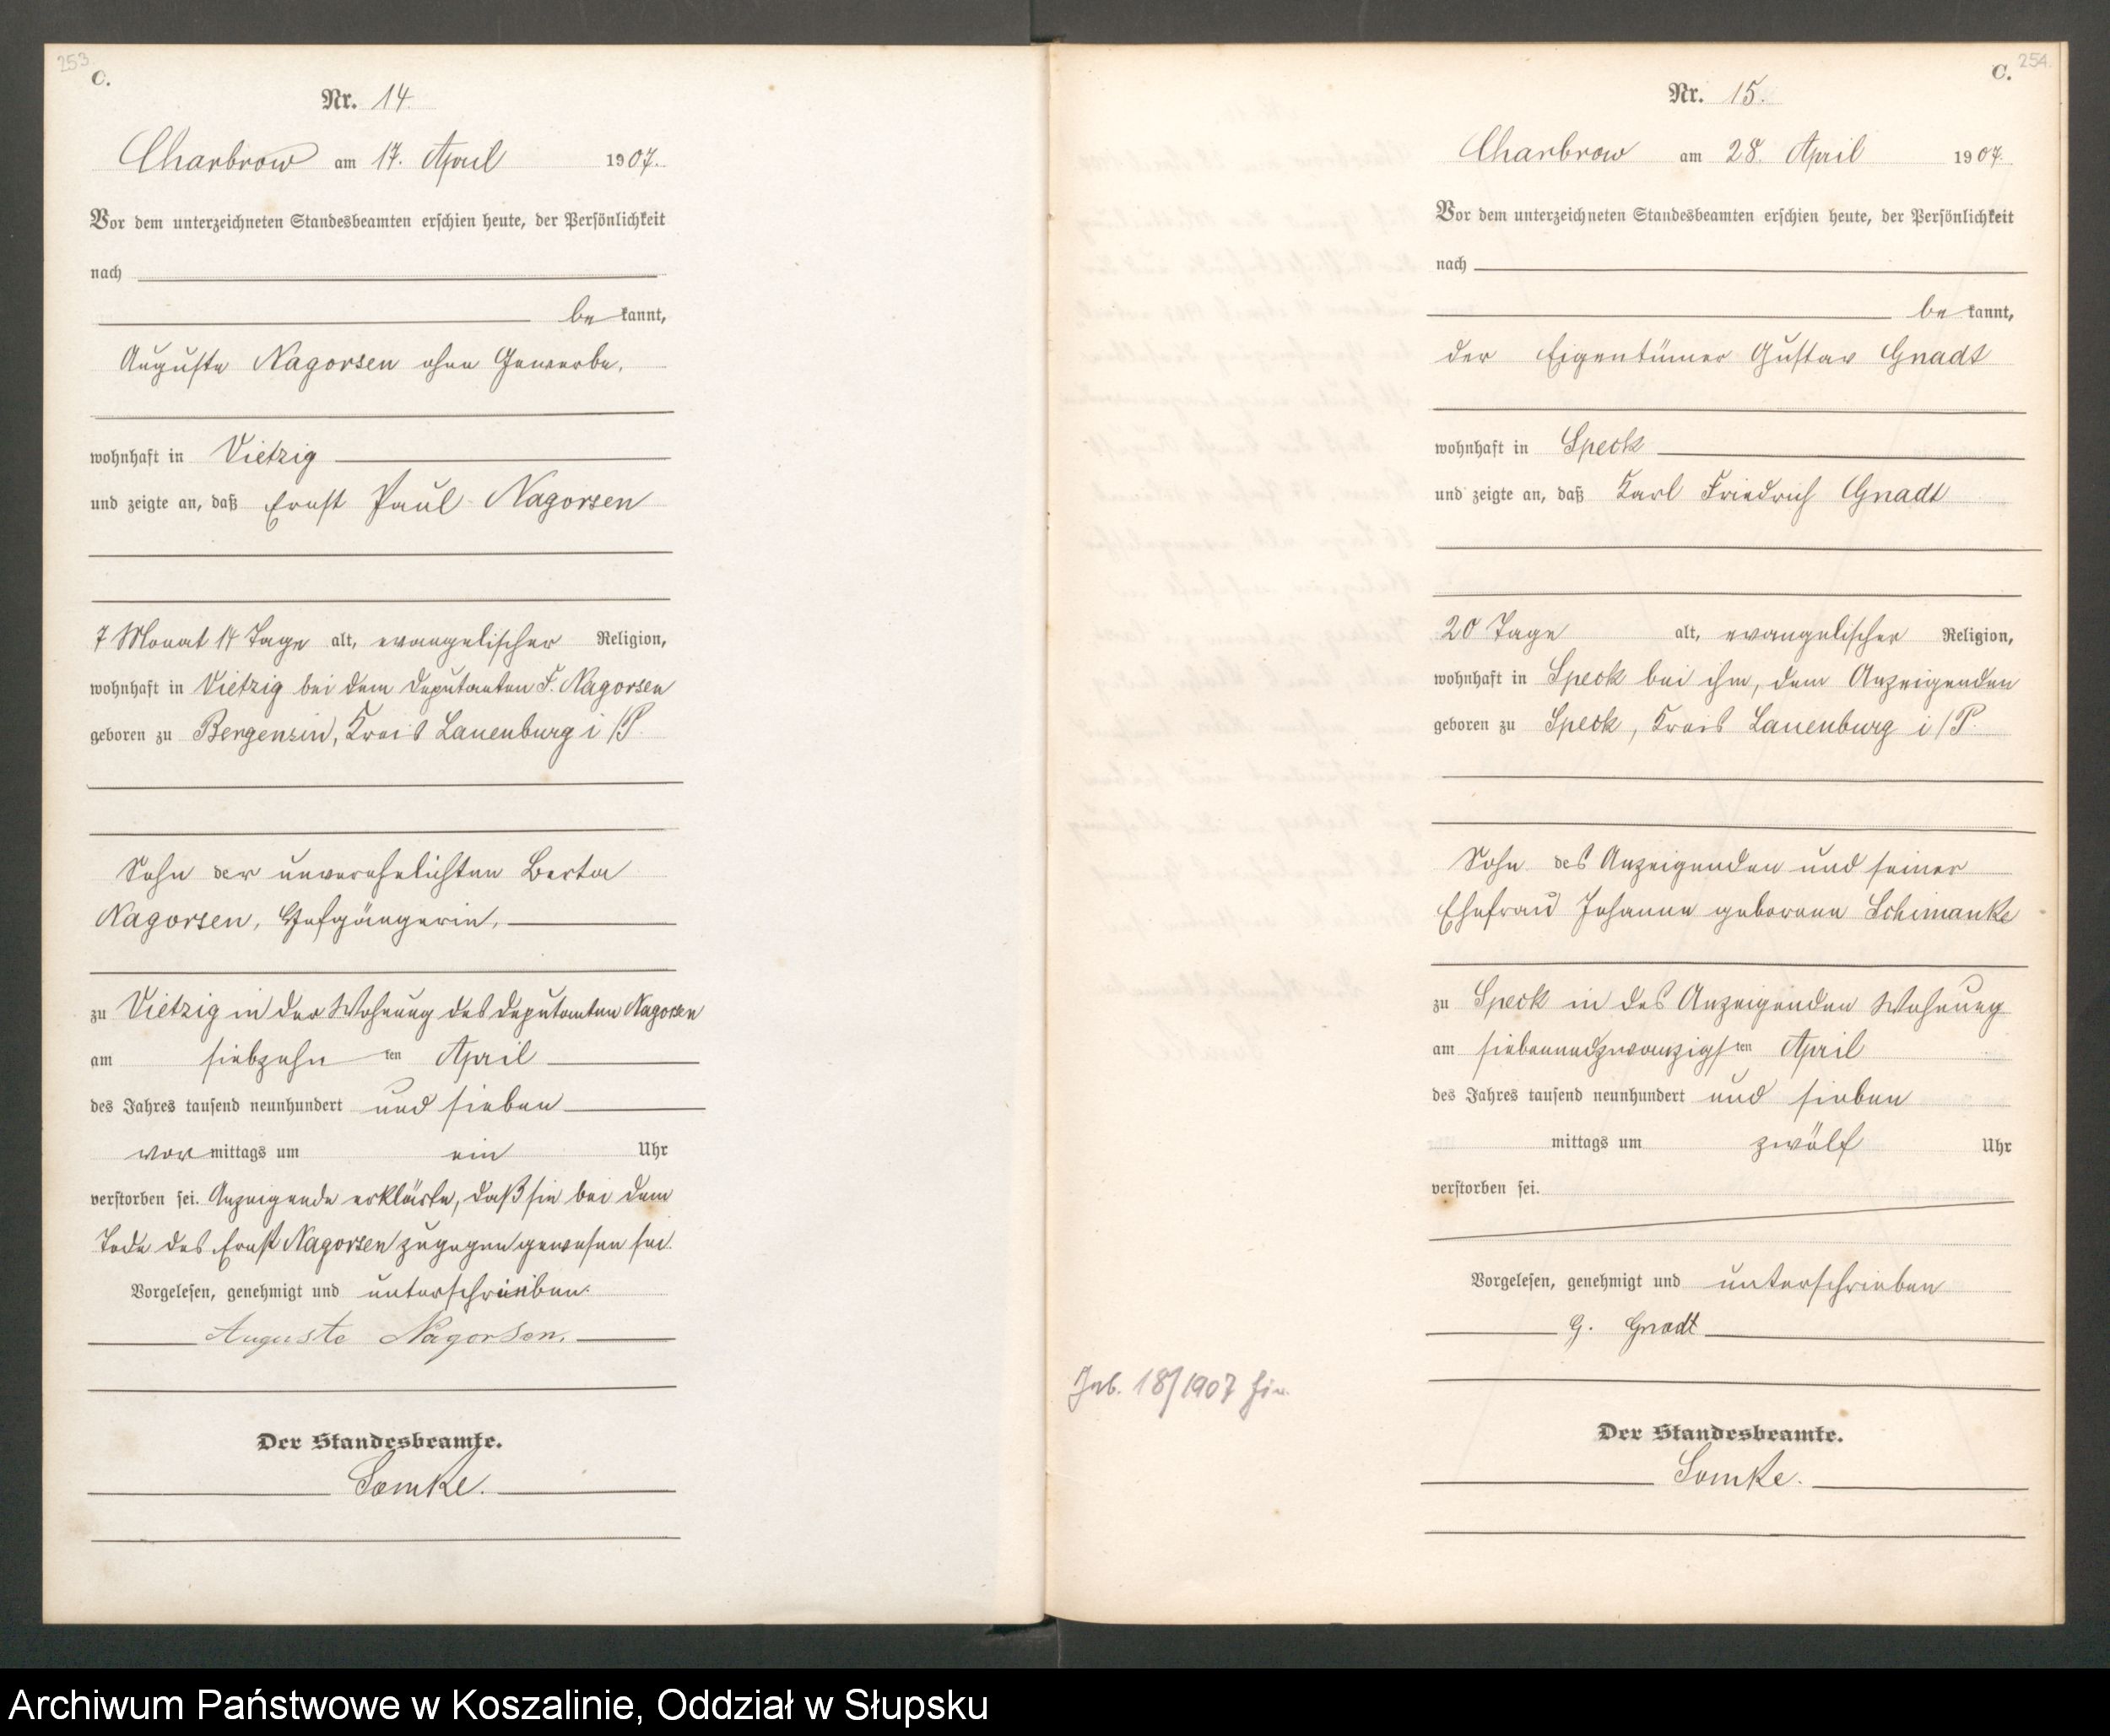 253
C.
Nr. 14.
Charbrow am 17. April 1907.
Vor dem unterzeichneten Standesbeamten erschien heute, der Persönlichkeit
nach
be kannt,
Auguste Nagorsen ohne Gewerbe,
wohnhaft in Vietzig
und zeigte an, daß Ernst Paul Nagorsen
7 Monat 14 Tage alt, evangelischer Religion,
wohnhaft in Vietzig bei dem Deputanten F. Nagorsen
geboren zu Bergensin, Kreis Lauenburg i/P.
Sohn der unverehelichten Berta
Nagorsen, Hofgängerin,
zu Vietzig in der Wohnung des Deputanten Nagorsen
am siebzehn ten April
des Jahres tausend neunhundert und sieben
vor mittags um ein Uhr
verstorben sei. Anzeigende erklärte, daß sie bei dem
Tode des Ernst Nagorsen zugegen gewesen sei.
Vorgelesen, genehmigt und unterschrieben.
Auguste Nagorsen.
Der Standesbeamte.
Somke.
254.
C.
Nr. 15.
Charbrow am 28. April 1907.
Vor dem unterzeichneten Standesbeamten erschien heute, der Persönlichkeit
nach
be kannt,
der Eigentümer Gustav Gnadt
wohnhaft in Speck
und zeigte an, daß Karl Friedrich Gnadt
20 Tage alt, evangelischer Religion,
wohnhaft in Speck bei ihm, dem Anzeigenden
geboren zu Speck, Kreis Lauenburg i/P.
Sohn des Anzeigenden und seiner
Ehefrau Johanne geborene Schimanke
zu Speck in des Anzeigenden Wohnung
am siebenundzwanzigs ten April
des Jahres tausend neunhundert und sieben
mittags um zwölf Uhr
verstorben sei.
Vorgelesen, genehmigt und unterschrieben
G. Gnadt
Geb. 18/1907 hier.
Der Standesbeamte.
Somke.
Archiwum Państwowe w Koszalinie, Oddział w Słupsku